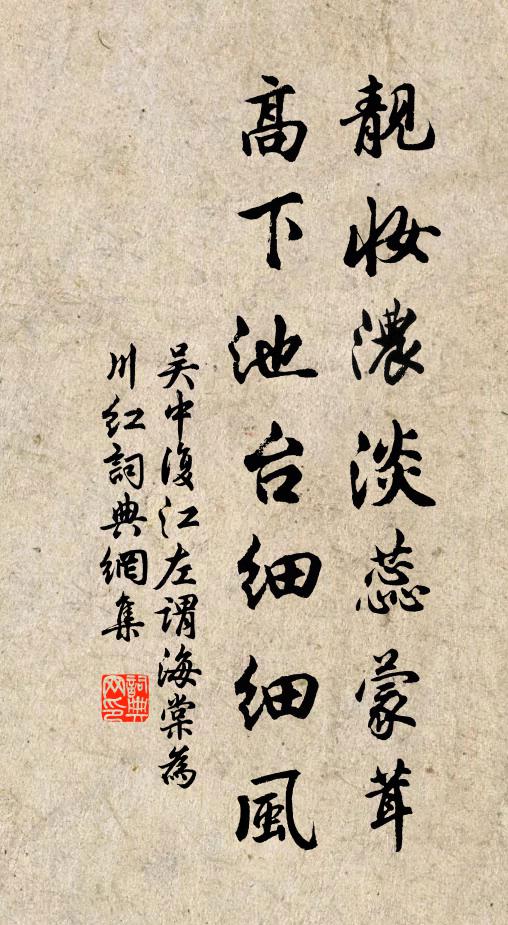 靚妝濃淡蕊蒙茸
高下池台細細風
吳中復江左謂海棠為
川紅詞典網集
詞典
网印